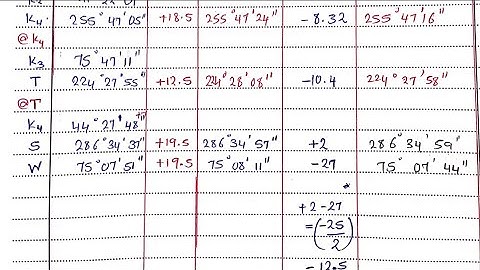 K4. 255°47'05" +18.5 255°47'24" -8.32 255°47'16"
@K4
K3 75°47'11"
T 224°27'55" +12.5 224°28'08" -10.4 224°27'58"
@T
K4 44°27'48"
S 286°34'37" +19.5 286°34'57" +2 286°34'59"
W 75°07'51" +19.5 75°08'11" -27 75°07'44"
*
+2-27
=(-25/2)
-12.5